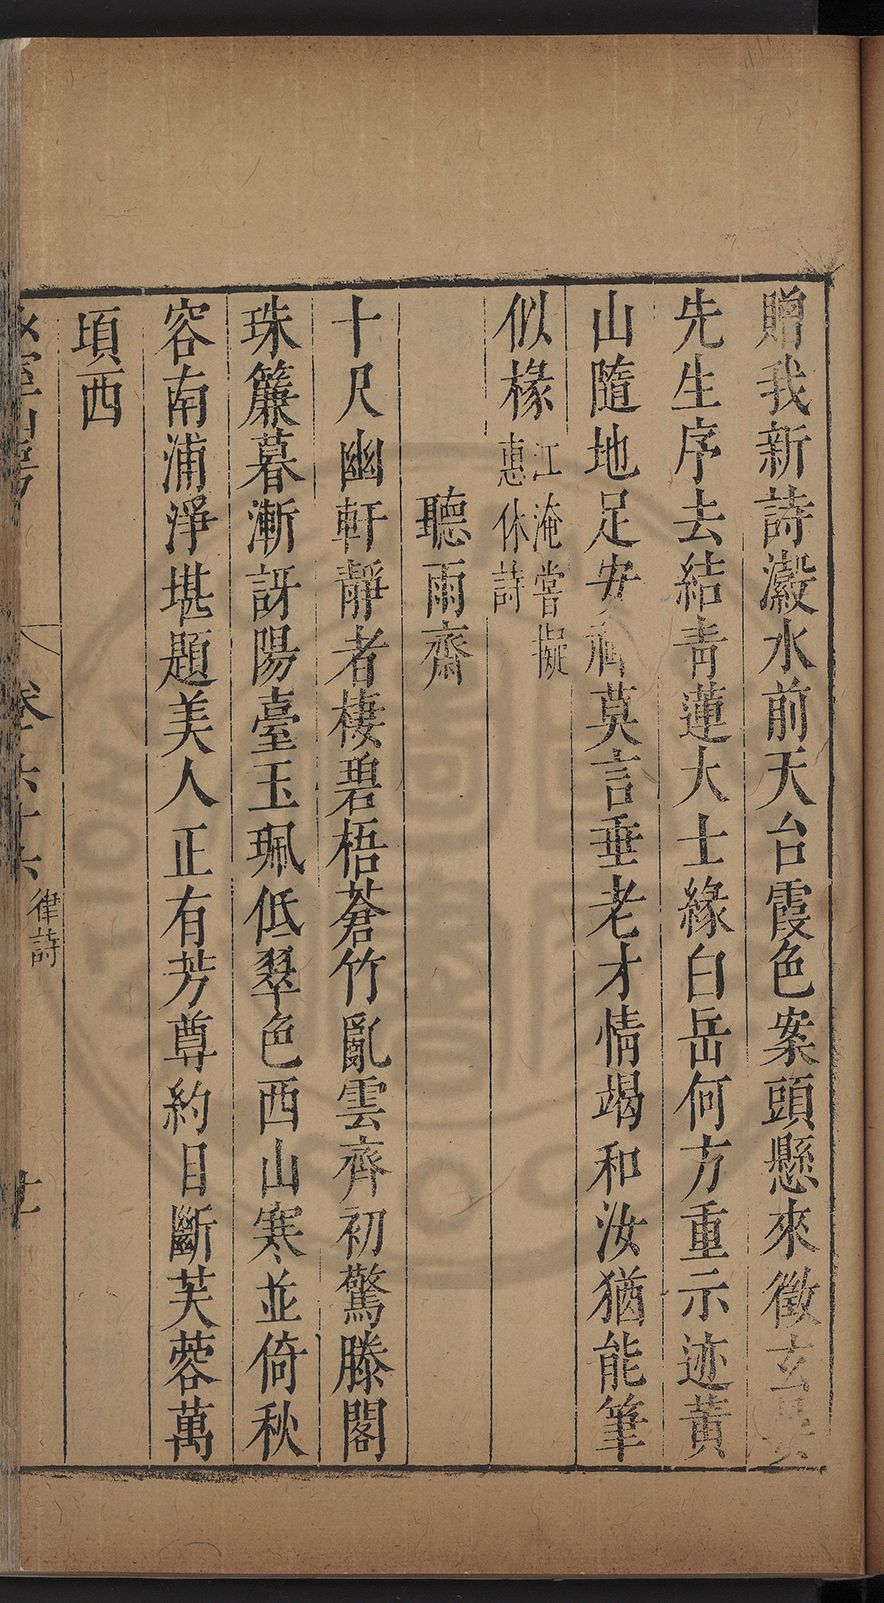 贈我新詩瀫水前天台霞色案頭懸來徵玄晏
先生序去結青蓮大士緣白岳何方重示迹黃
山隨地足安禪莫言垂老才情竭和汝猶能筆
似椽江淹嘗擬
惠休詩
聽雨齋
十尺幽軒靜者棲碧梧蒼竹亂雲齊初驚滕閣
珠簾暮漸訝陽臺玉珮低翠色西山寒並倚秋
容南浦淨堪題美人正有芳尊約目斷芙蓉萬
頃西
卷六十六
律詩